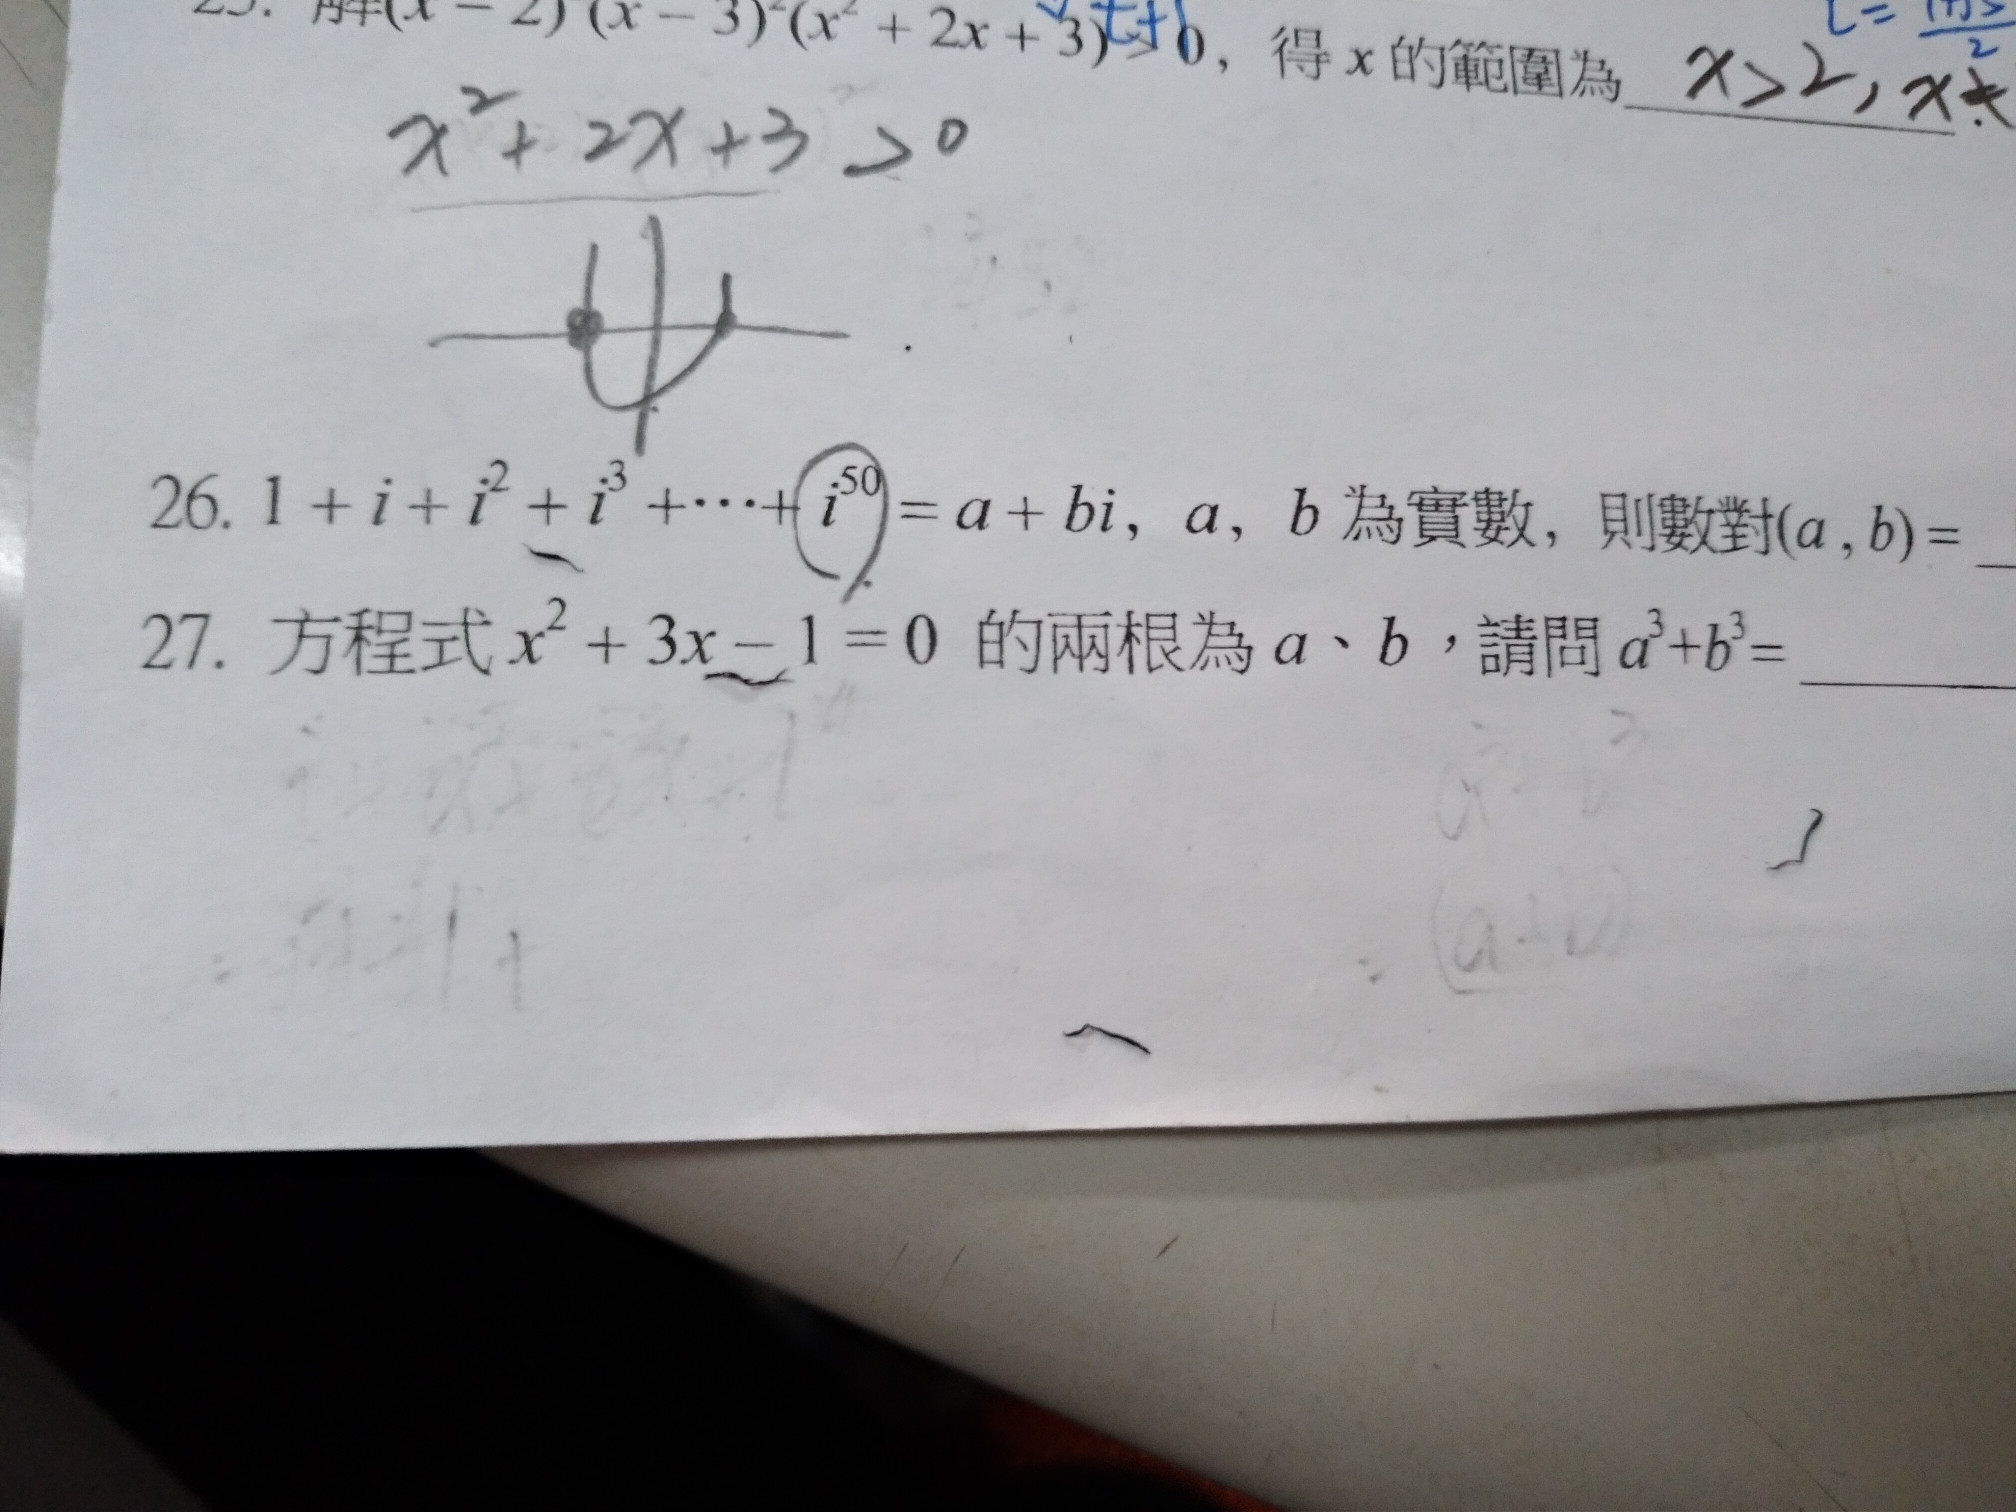 解(x − 2) (x − 3)²(x² + 2x + 3) > 0，得 x 的範圍為 x>2, x≠
x²+2x+3 >0
26. 1 + i + i² + i³ +⋯+ i⁵⁰ = a + bi，a，b 為實數，則數對(a , b) = 
27. 方程式 x² + 3x − 1 = 0 的兩根為 a、b，請問 a³+b³=